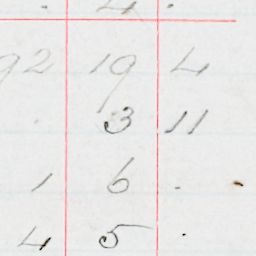 . 4 .
92 19 4
. 3 11
1 6 .
4 5 .